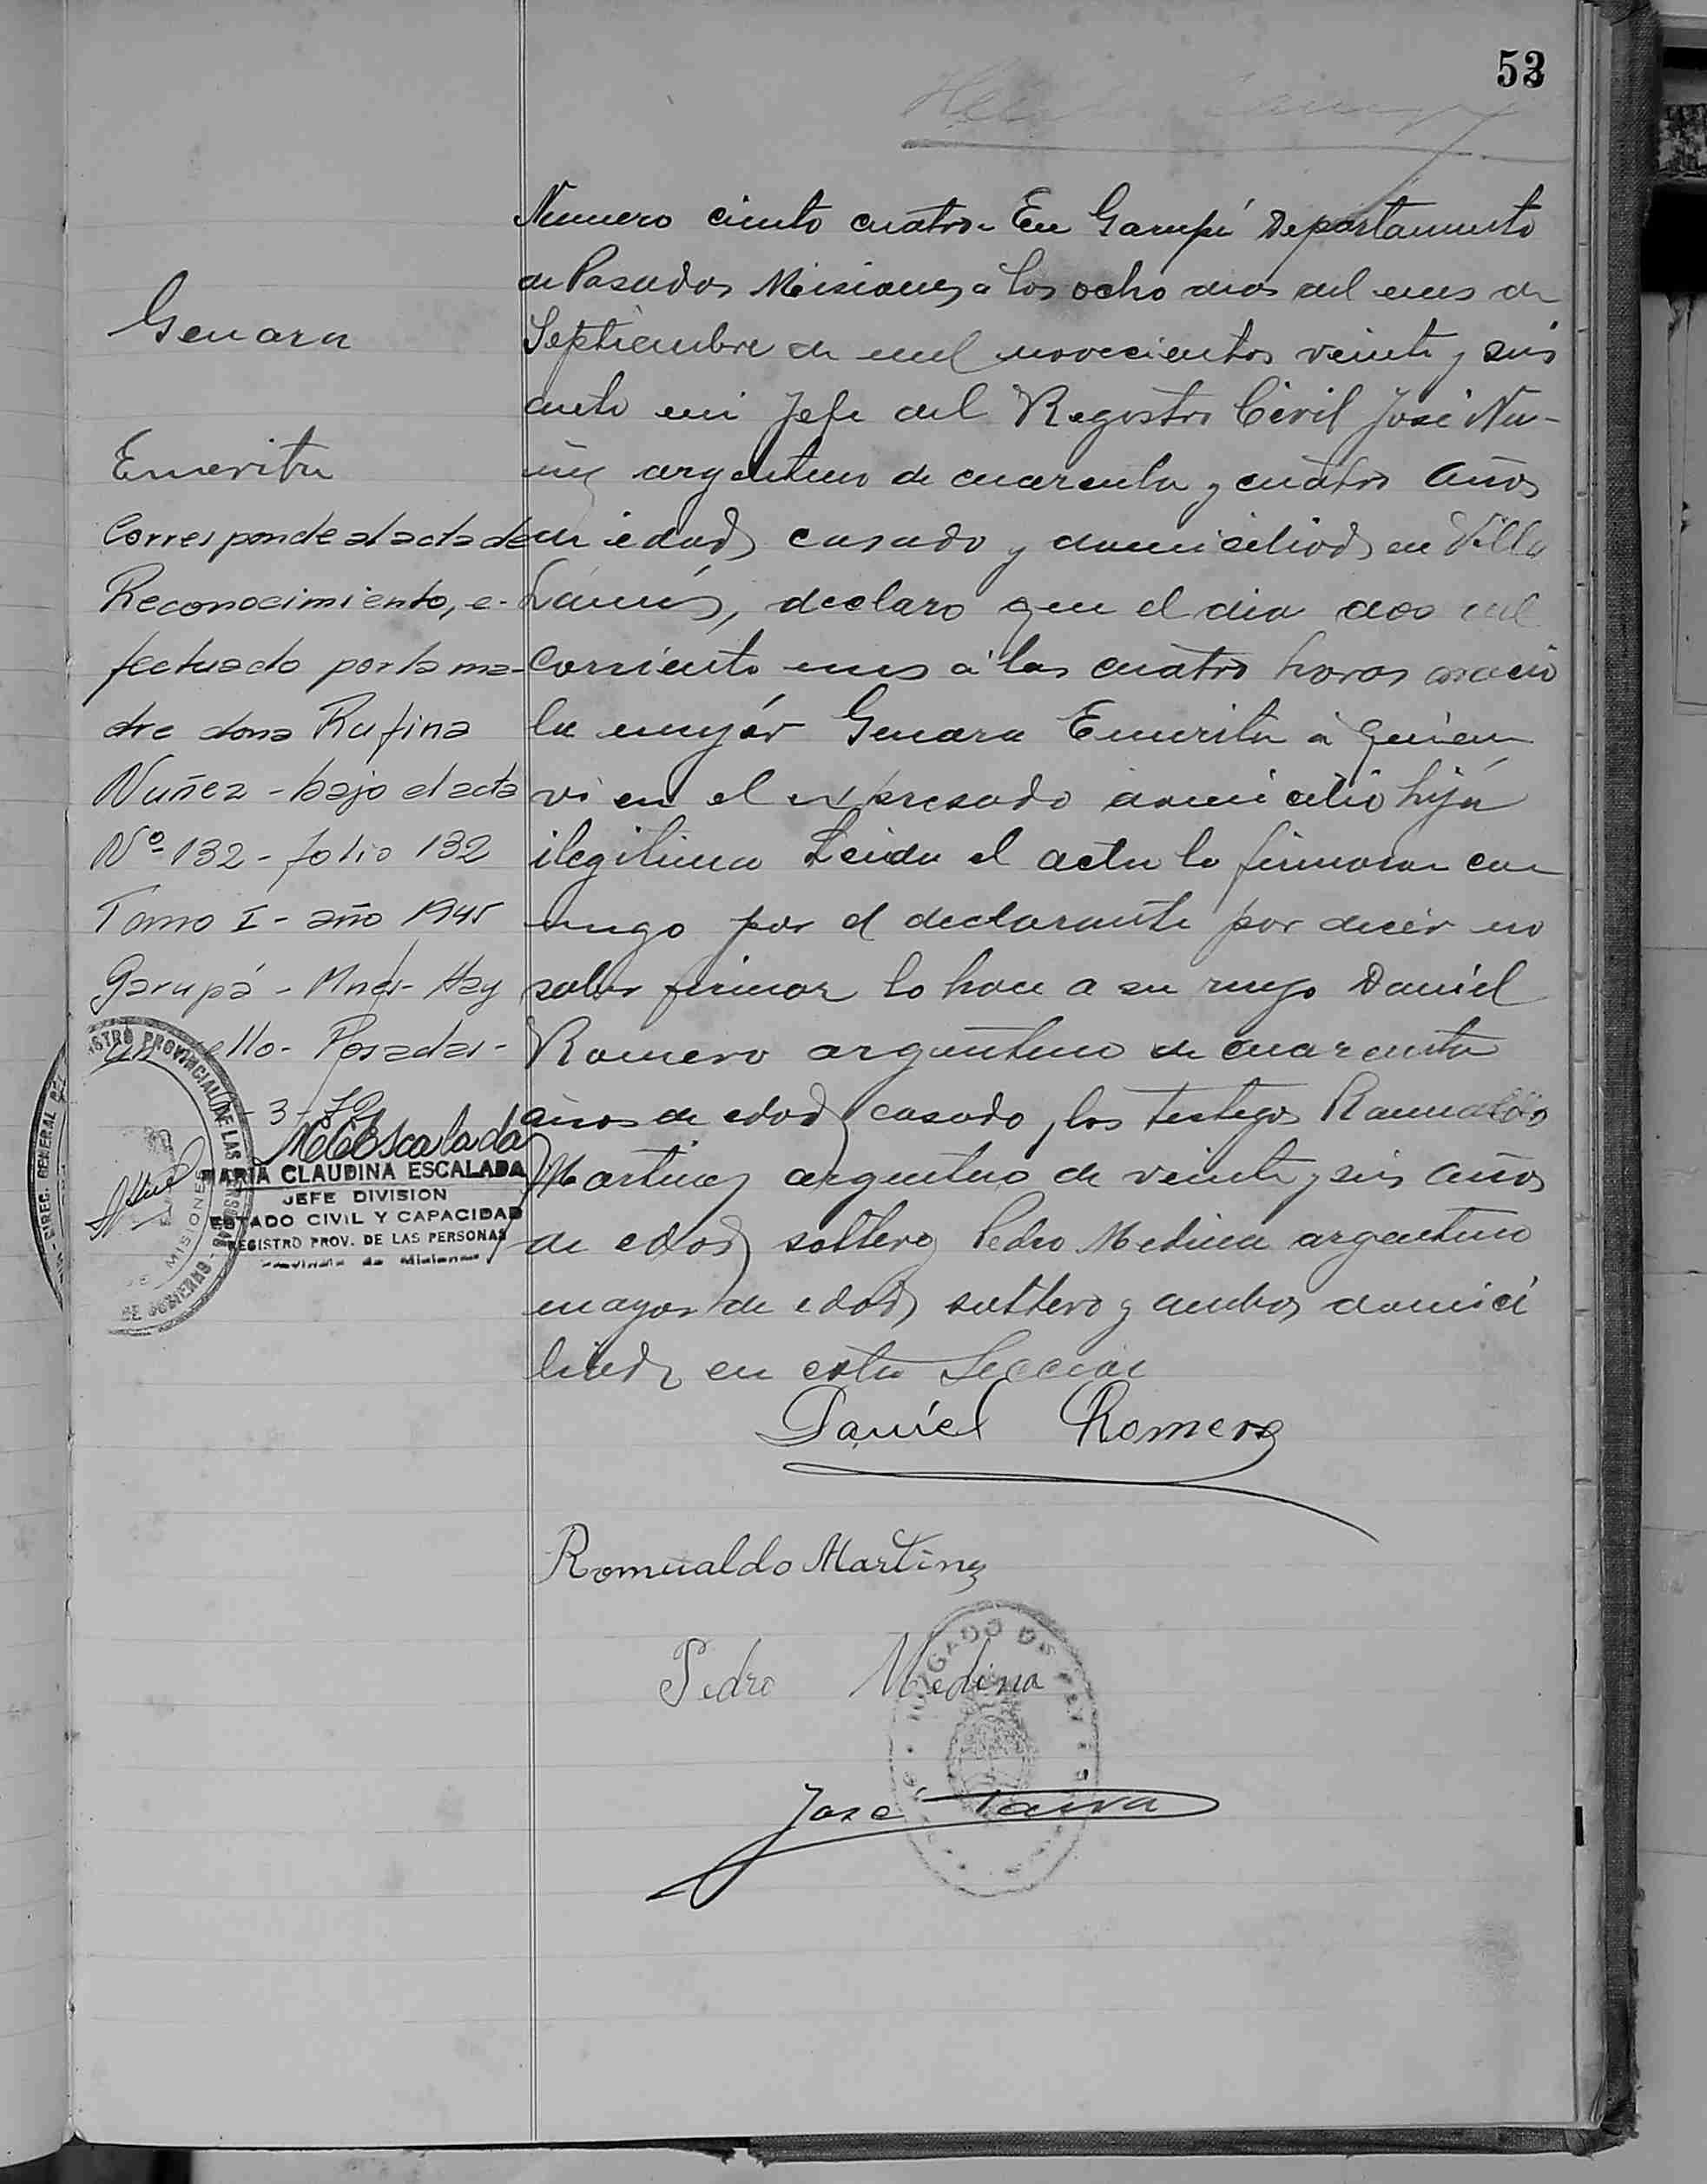 53
Numero ciento cuatro. En Garupá Departamento
de Posadas Misiones a los ocho dias del mes de
Septiembre de mil novecientos veinte y seis
ante mi Jefe del Registro Civil José Nu-
ñez argentino de cuarenta y cuatro años
de edad casado y domiciliado en Villa
Lanús, declaro que el dia dos del
corriente mes á las cuatro horas nació
la mujér Genara Emerita á quien
vi en el expresado domicilio hija
ilegitima Leida el acta la firmaron con
migo por el declarante por decir no
saber firmar lo hace a su ruego Daniel
Romero argentino de cuarenta
años de edad casado, los testigos Romualdo
Martinez argentino de veinte y seis años
de edad soltero, Pedro Medina argentino
mayor de edad soltero y ambos domici
liados en esta Sección
Daniel Romero
Romualdo Martinez
Pedro Medina
JUZGADO DE PAZ
José
Genara
Emerita
Corresponde al acta de
Reconocimiento, e-
fectuado por la ma-
dre dona Rufina
Nuñez - bajo el acta
Nº 132 - folio 132
Tomo I - año 1945
Garupá - Mnes - Hay
un sello - Posadas -
- 3 -
MCEscalada
MARIA CLAUDINA ESCALADA
JEFE DIVISION
ESTADO CIVIL Y CAPACIDAD
REGISTRO PROV. DE LAS PERSONAS
Provincia de Misiones
REGISTRO PROVINCIAL DE LAS PERSONAS
MISIONES
DIREC. GENERAL DEL
DE GOBIERNO